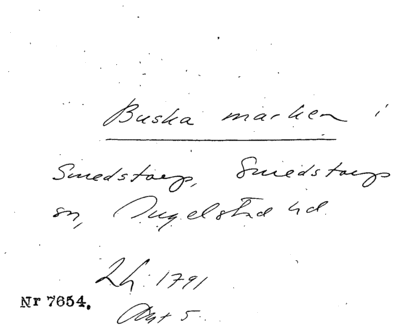 Buska marken i
Smedstorp, Smedstorps
sn, Ingelstad hd.
Lh. 1791
Akt 5
Nr 7654.